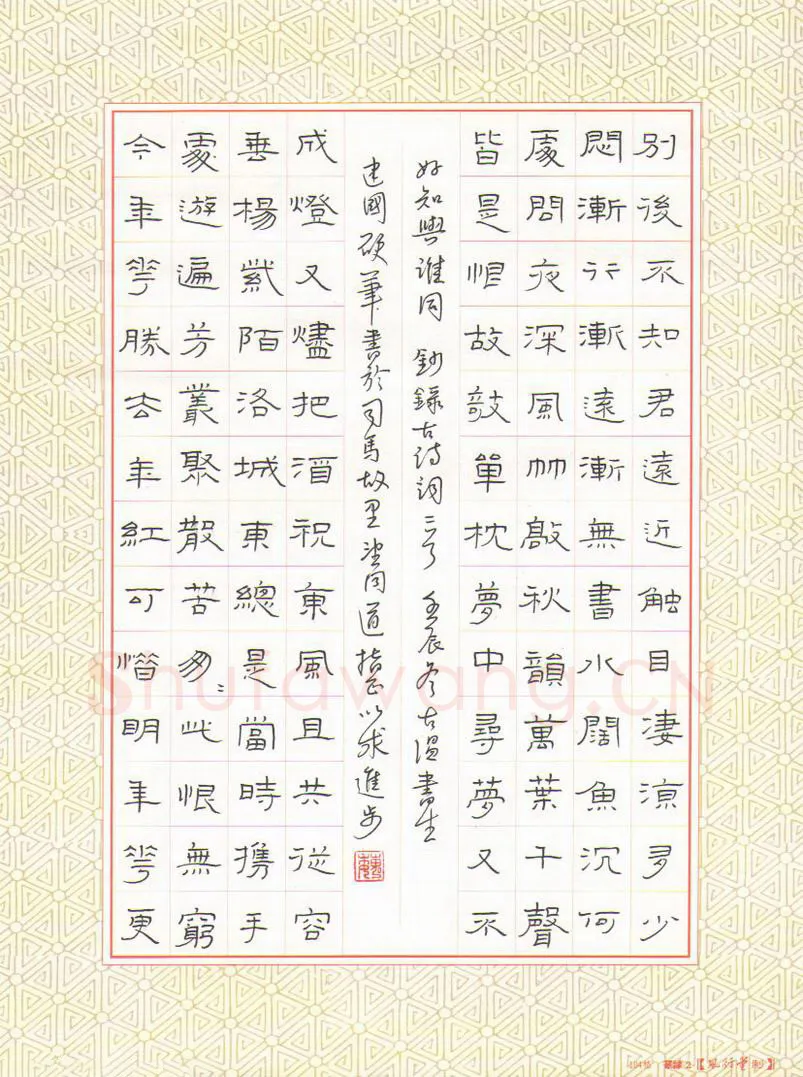 別後不知君遠近触目淒涼多少
悶漸行漸遠漸無書水闊魚沉何
處問夜深風竹敲秋韻萬葉千聲
皆是恨故敧單枕夢中尋夢又不
成燈又燼把酒祝東風且共從容
垂楊紫陌洛城東總是當時携手
處遊遍芳叢聚散苦匆〻此恨無窮
今年花勝去年紅可惜明年花更
好知與誰同 鈔錄古詩詞 壬辰冬古温書生
建國硬筆書於司馬故里望同道指正以求進步
Shufawang.CN